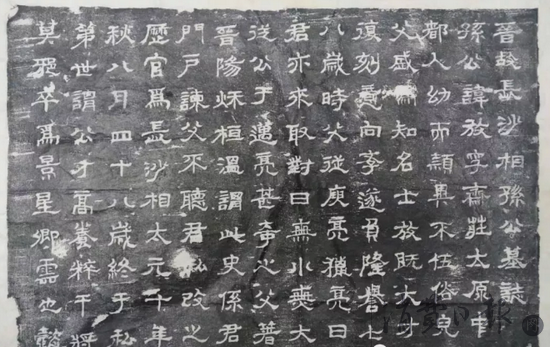 晉故長沙相孫公墓誌
孫公諱放字齋莊太原中
都人幼而穎異不伍俗兒
父盛爲知名士放既大才
復刻勵向學遂負隆譽七
八歲時父從庾亮獵亮曰
君亦來耶對曰無小無大
從公于邁亮甚奇之父著
晉陽秋桓溫謂此史係君
門戶諫父不聽君私改之
歷官爲長沙相太元十年
秋八月四十八歲終于私
第世謂公才高養粹干將
莫邪卒爲景星卿雲也